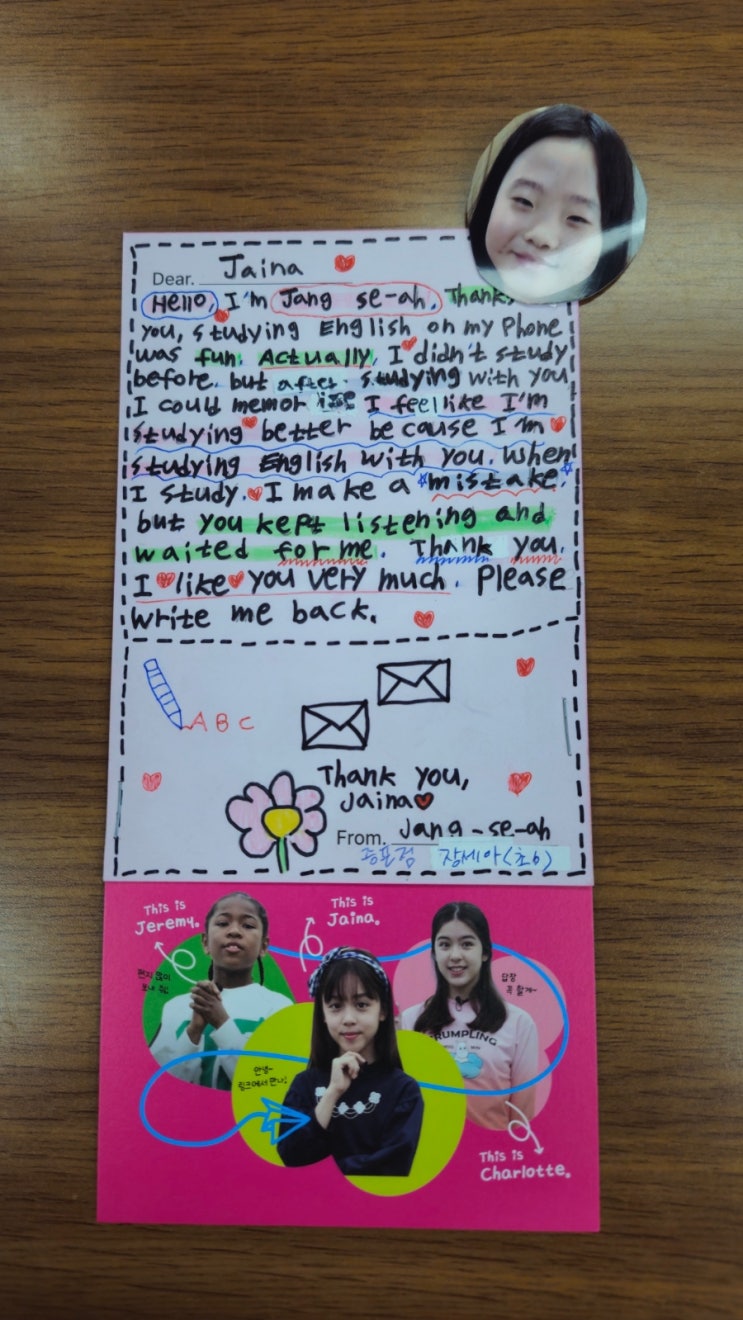 Dear. Jaina
Hello, I'm Jang se-ah. Thank
you, studying English on my Phone
was fun. Actually, I didn't study
before. but after studying with you
I could memorize I feel like I'm
studying better because I'm
studying English with you. When
I study. I make a mistake.
but you kept listening and
waited for me. Thank you.
I like you very much. Please
write me back.
A B C
Thank you,
Jaina
From. Jang-se-ah
장세아(초6)
This is
Jeremy.
This is
Jaina.
편지 많이
보내 줘!
답장
꼭 할게~
RUMPLING
안녕~
링크에서 만나!
This is
Charlotte.